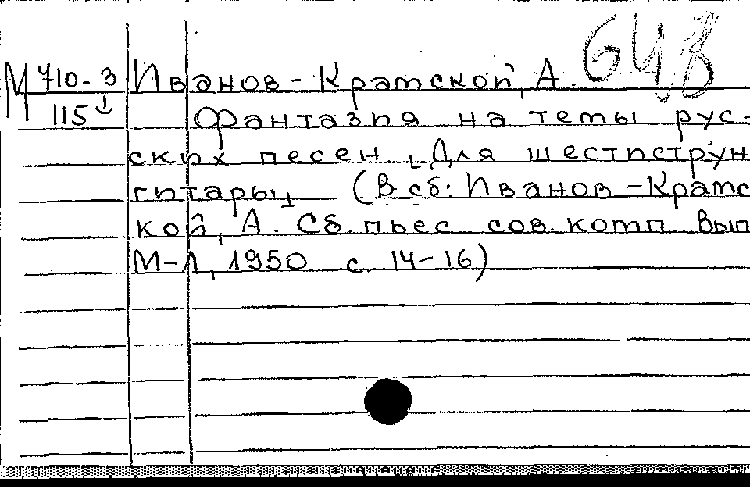 М 710-3 Иванов-Крамской, А.
115 Фантазия на темы рус-
ских песен [Для шестиструн
гитары] (В сб: Иванов-Крамс
кой, А. Сб. пьес сов. комп. Вып
М-Л, 1950 с. 14-16)